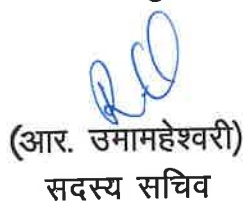 (आर. उमामहेश्वरी)
सदस्य सचिव